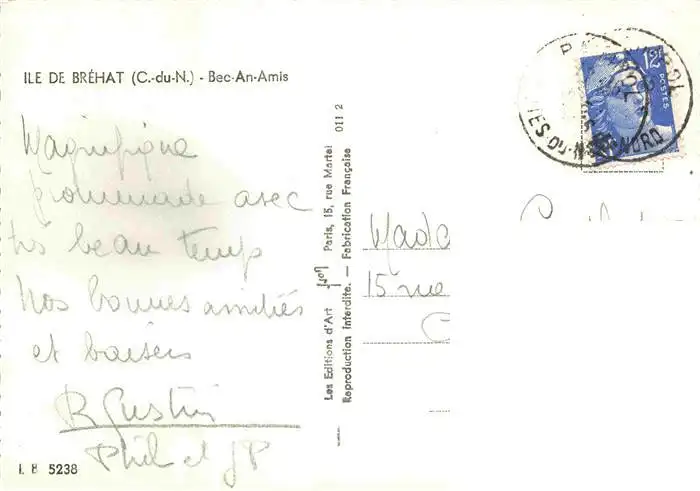 ILE DE BRÉHAT (C.-du-N.) - Bec-An-Amis
Magnifique
promenade avec
très beau temps
Nos bonnes amitiés
et baisers
Phil et JP
I. B 5238
Les Editions d'Art Yvon Paris, 15, rue Martel 011 2
Reproduction interdite. — Fabrication Française
12
POSTES
CÔTES-DU-NORD
Mada
15 rue